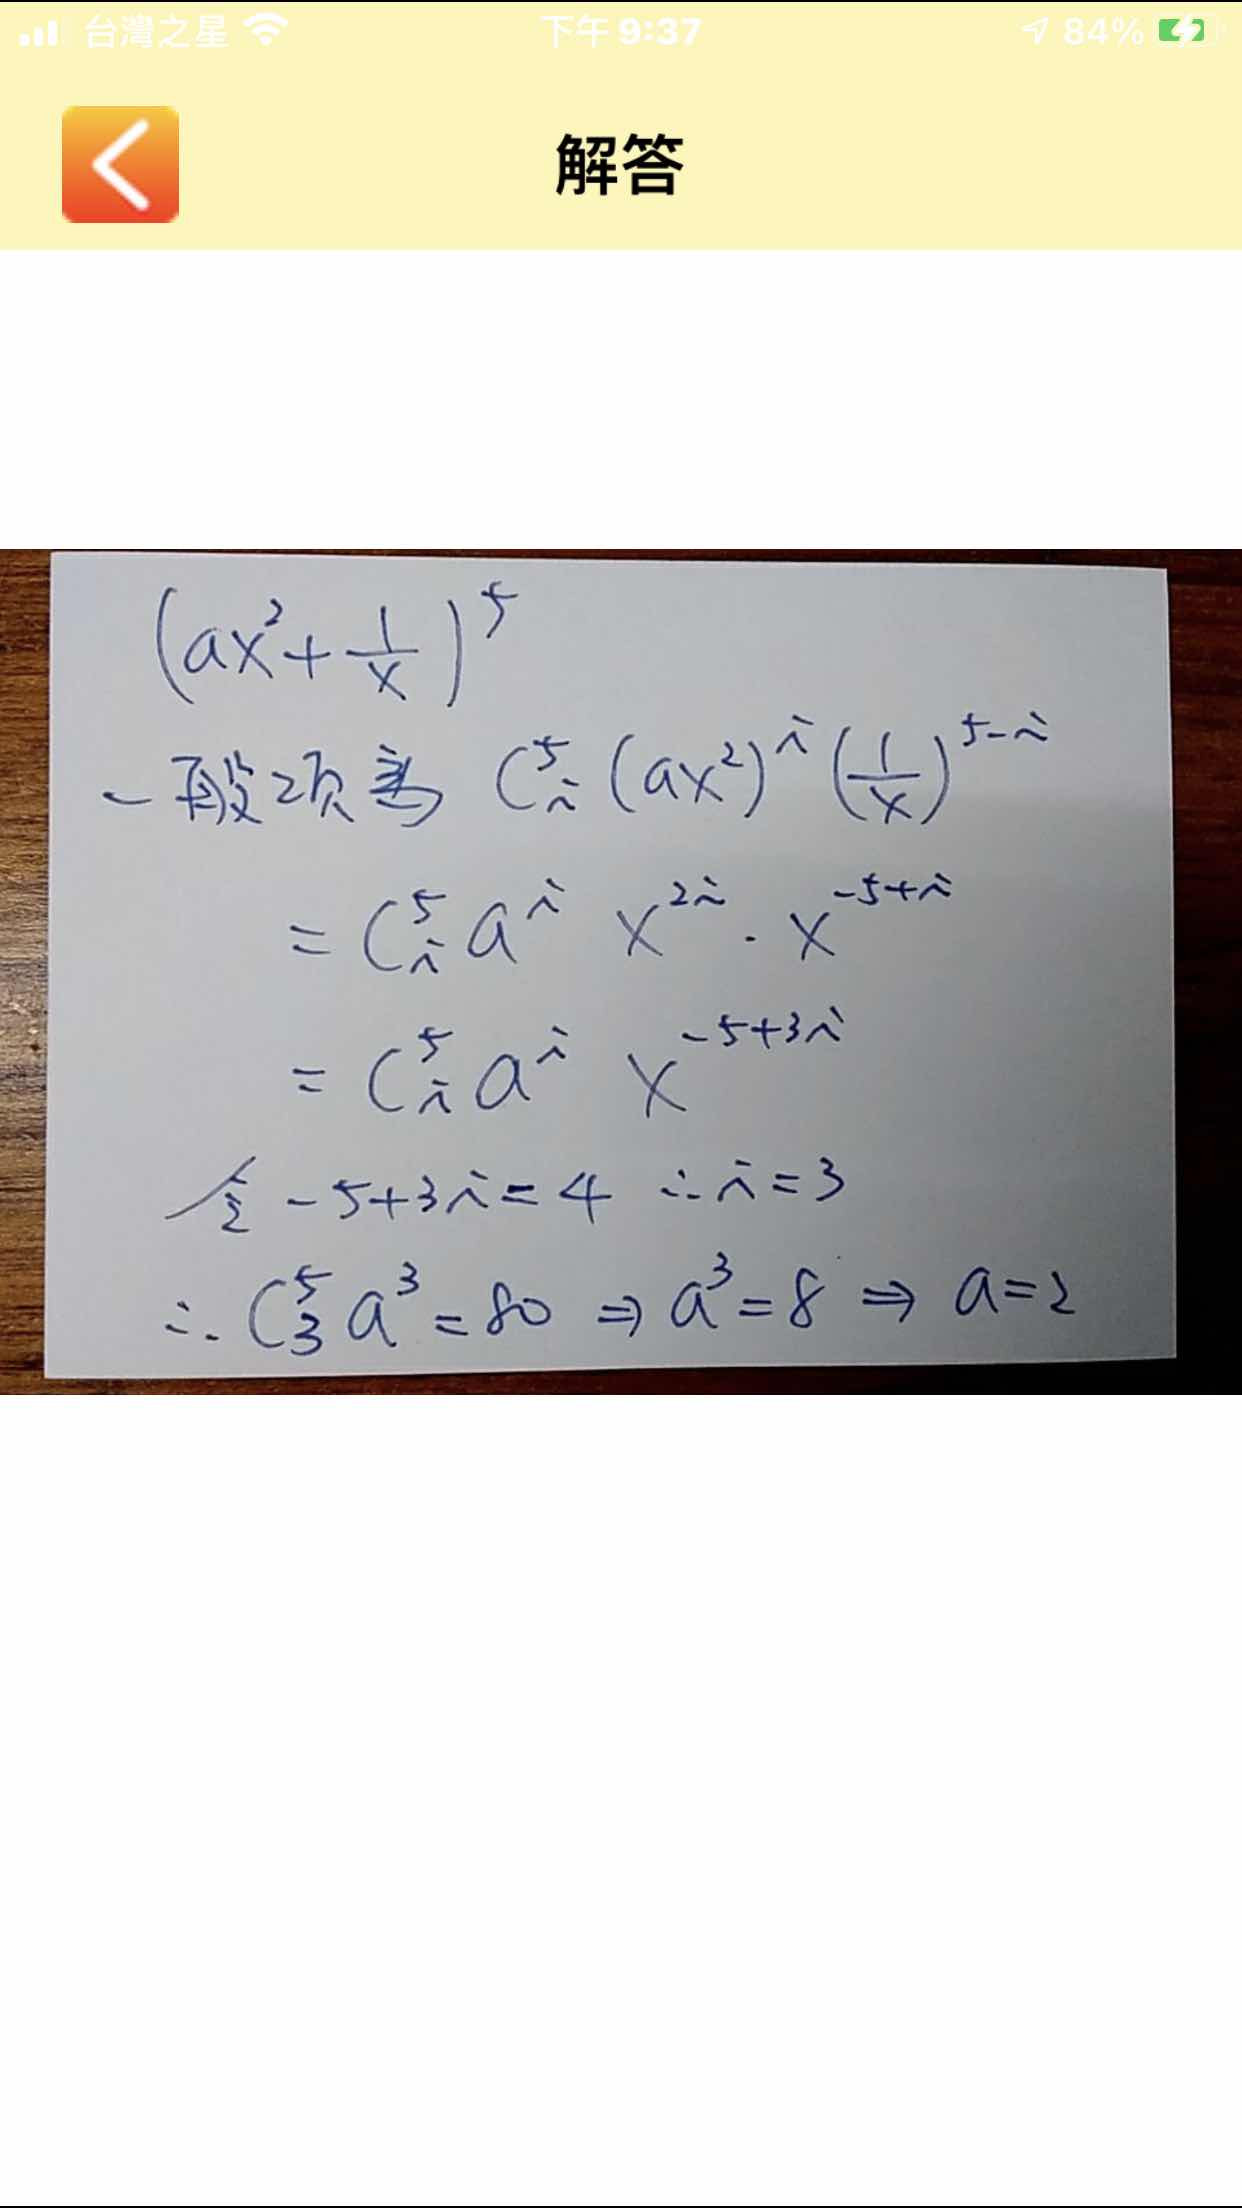 台灣之星 下午9:37 84%
解答
(ax²+1/x)⁵
一般項為 C⁵ᵢ (ax²)ⁱ (1/x)⁵⁻ⁱ
= C⁵ᵢ aⁱ x²ⁱ · x⁻⁵⁺ⁱ
= C⁵ᵢ aⁱ x⁻⁵⁺³ⁱ
令 -5+3i=4 ∴i=3
∴ C⁵₃ a³ = 80 ⇒ a³=8 ⇒ a=2